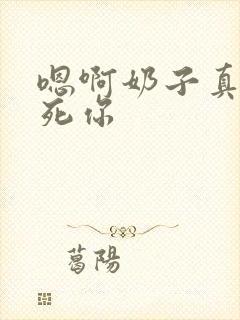 嗯啊奶子真
死你
葛陽